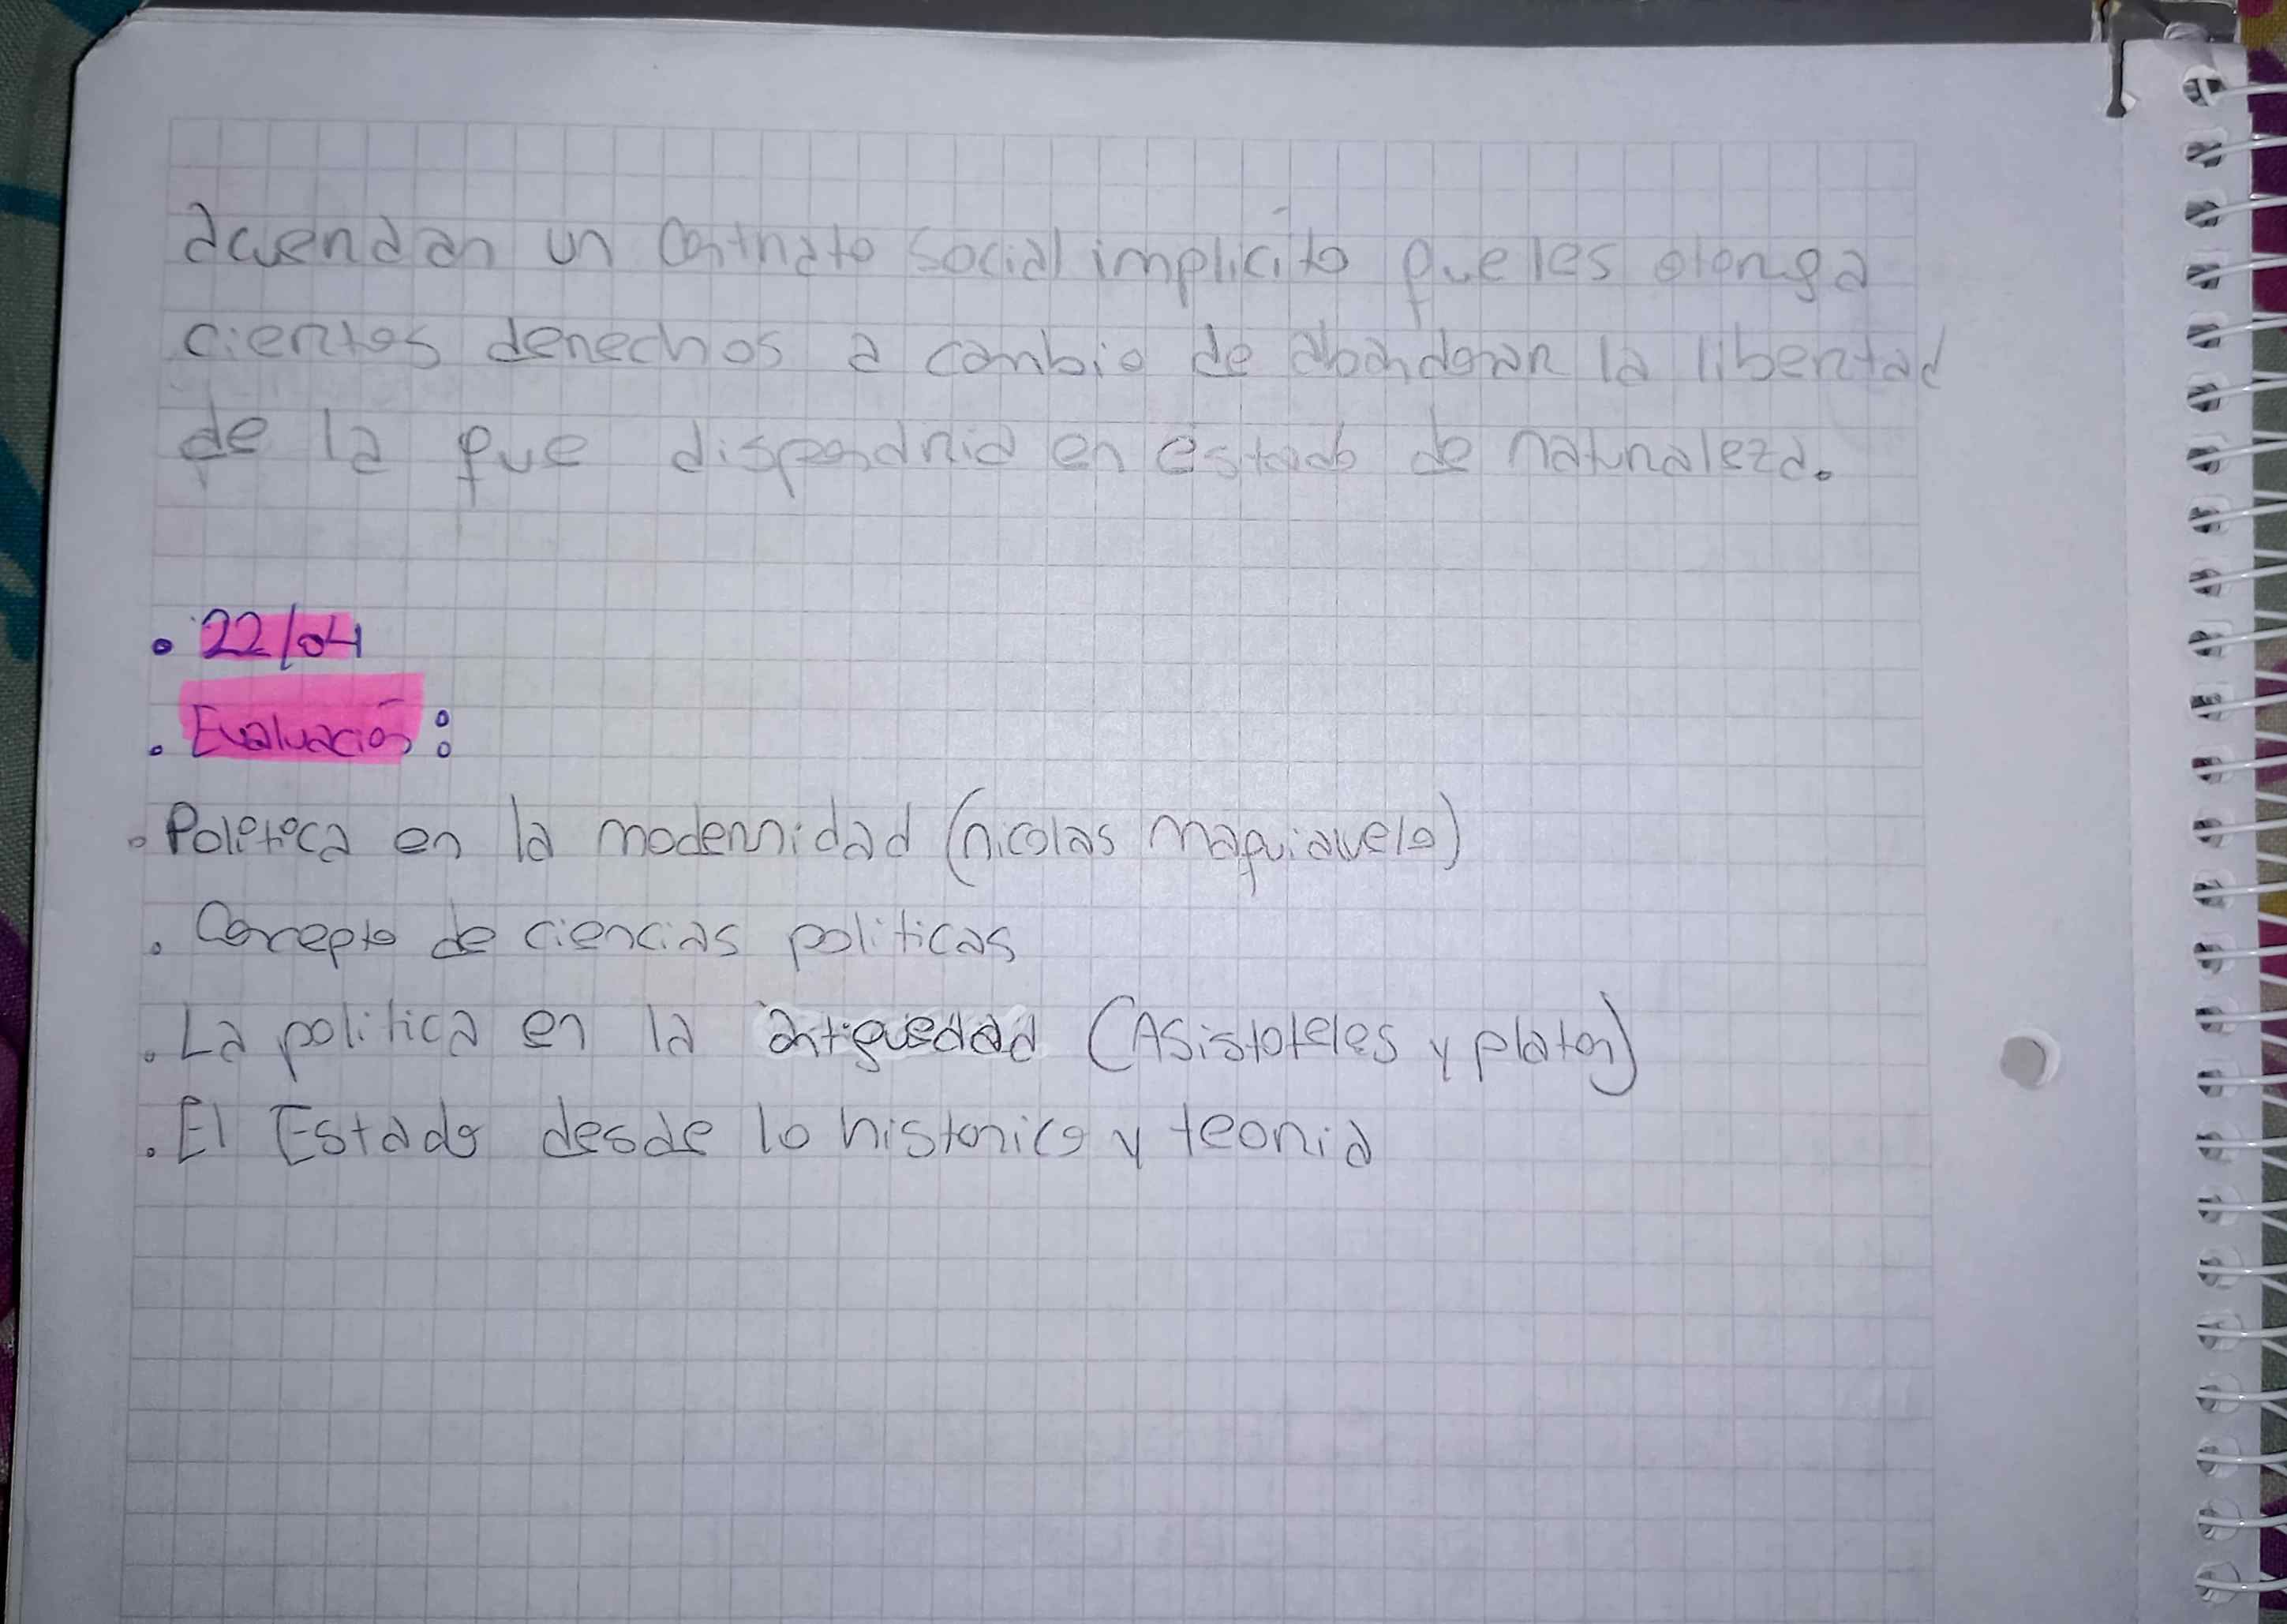 acuerdan un contrato social implícito que les otorga
ciertos derechos a cambio de abandonar la libertad
de la que dispondria en estado de naturaleza.
• 22/04
• Evaluación:
• Politica en la modernidad (nicolas maquiavelo)
• Concepto de ciencias politicas
• La politica en la antiguedad (Asistoteles y platon)
• El Estado desde lo historico y teoria